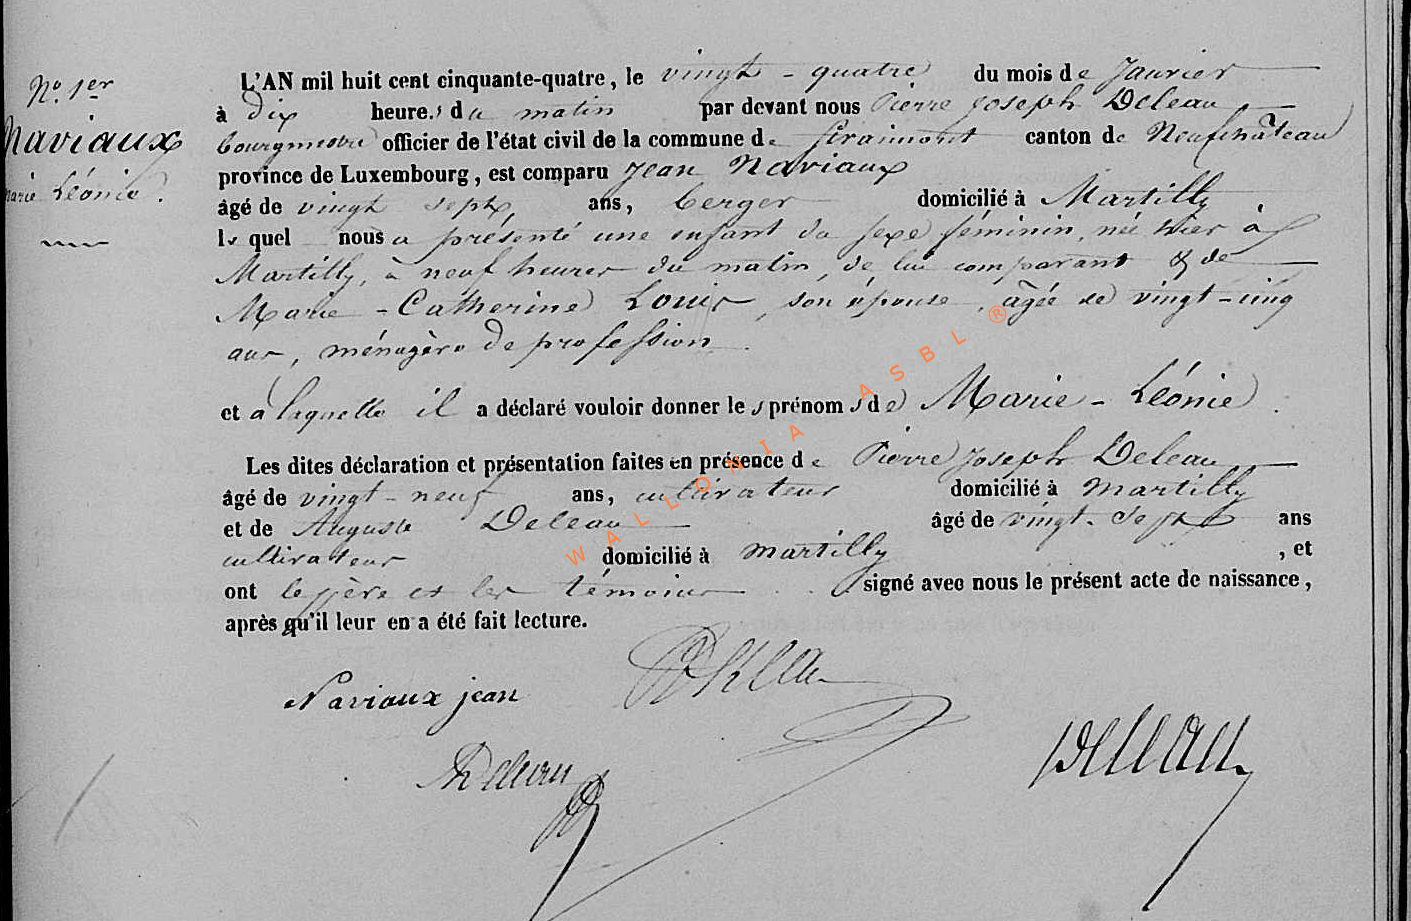 N.º 1er
Naviaux
Marie Léonie.
L'AN mil huit cent cinquante-quatre, le vingt-quatre du mois de Janvier
à dix heures du matin par devant nous Pierre Joseph Deleau
bourgmestre officier de l'état civil de la commune de Straimont canton de Neufchâteau
province de Luxembourg, est comparu Jean Naviaux
âgé de vingt sept, ans, berger domicilié à Martilly
lequel nous a présenté une enfant du sexe féminin, née hier à
Martilly, à neuf heures du matin, de lui comparant & de
Marie-Catherine Louis, son épouse, âgée de vingt-cinq
ans, ménagère de profession.
et à laquelle il a déclaré vouloir donner les prénoms de Marie-Léonie.
Les dites déclaration et présentation faites en présence de Pierre Joseph Deleau
âgé de vingt-neuf ans, cultivateur domicilié à Martilly
et de Auguste Deleau âgé de vingt-sept ans
cultivateur domicilié à Martilly, et
ont le père et les témoins signé avec nous le présent acte de naissance,
après qu'il leur en a été fait lecture.
Naviaux jean
Deleau
WALLONIA ASBL ®